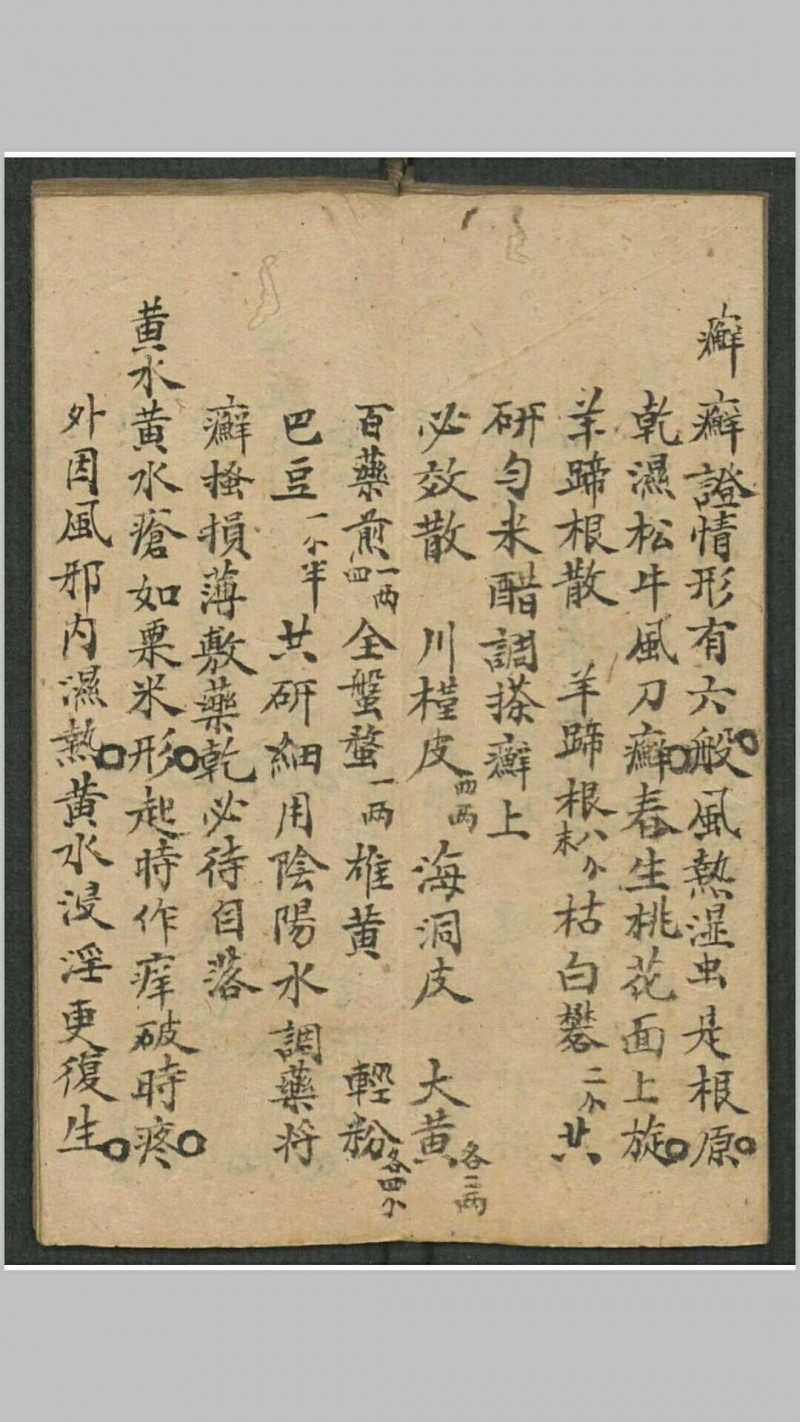 癬 癬證情形有六般風熱湿虫是根原
乾濕松牛風刀癬春生桃花面上旋
羊蹄根散 羊蹄根末八分枯白礬二分共
研勻米醋調搽癬上
必效散 川槿皮四两海洞皮 大黄各二两
百藥煎一两四全盤蝥一两雄黄 輕粉各四分
巴豆一个半共研細用陰陽水調藥将
癬搔損薄敷藥乾必待自落
黄水 黄水瘡如粟米形起時作痒破時疼
外因風邪内濕熱黄水浸淫更復生